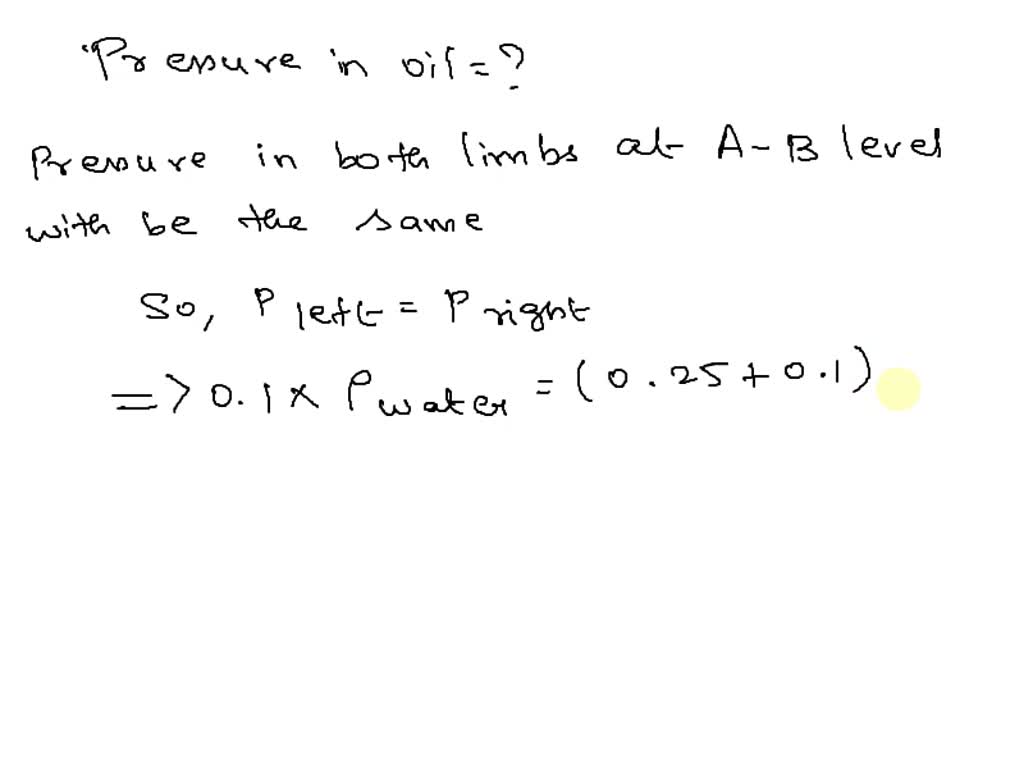 Pressure in oil = ?
Pressure in both limbs at A-B level
with be the same
So, P left = P right
=> 0.1 x ρ water = (0.25 + 0.1)